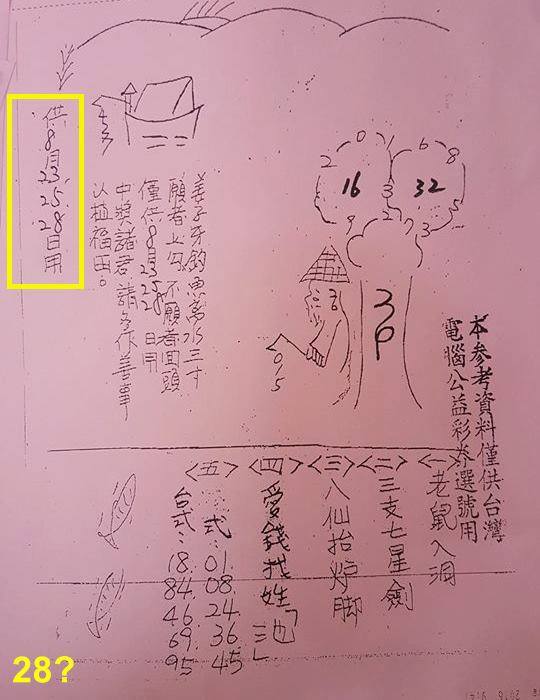 供8月23.25.28日用
姜子牙釣魚离水三寸
願者上勾不願者回頭
僅供8月23 25 28日用
中獎諸君請多作善事
以植福田。
16
32
本參考資料僅供台灣
電腦公益彩券選號用
<一>老鼠入洞
<二>三支七星劍
<三>八仙抬炉脚
<四>愛錢找姓「池」
<五>
式:01.08.24.36.45
台式:18.84.46.69.95
28?